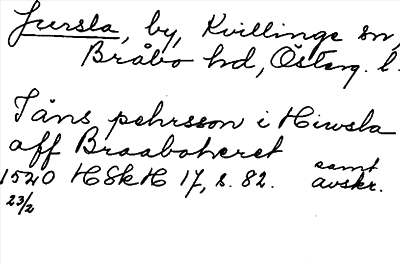 Jursla, by, Kvillinge sn,
Bråbo hd, Österg. l.
Jäns pehrsson i Hiwsla
aff Braaboheret
1540 HSkH 17, s. 82. samt avskr.
23/2